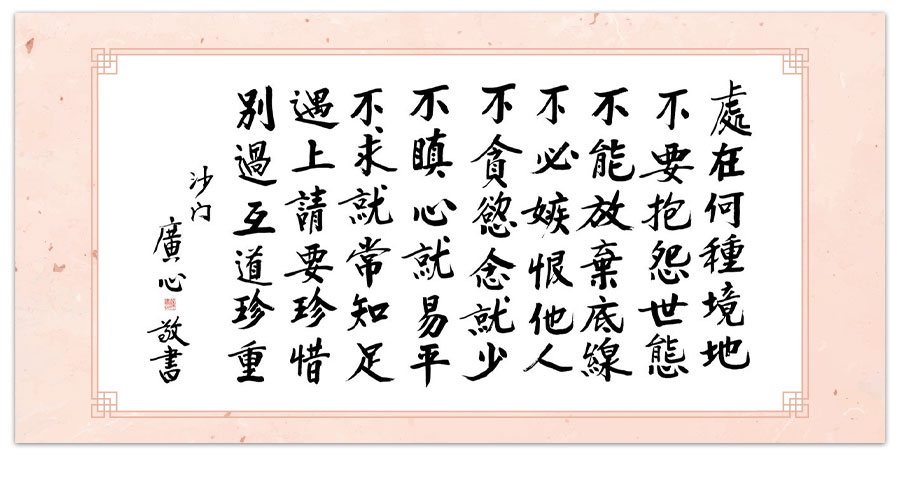 處在何種境地
不要抱怨世態
不能放棄底線
不必嫉恨他人
不貪慾念就少
不瞋心就易平
不求就常知足
遇上請要珍惜
別過互道珍重
沙门
廣心
敬書